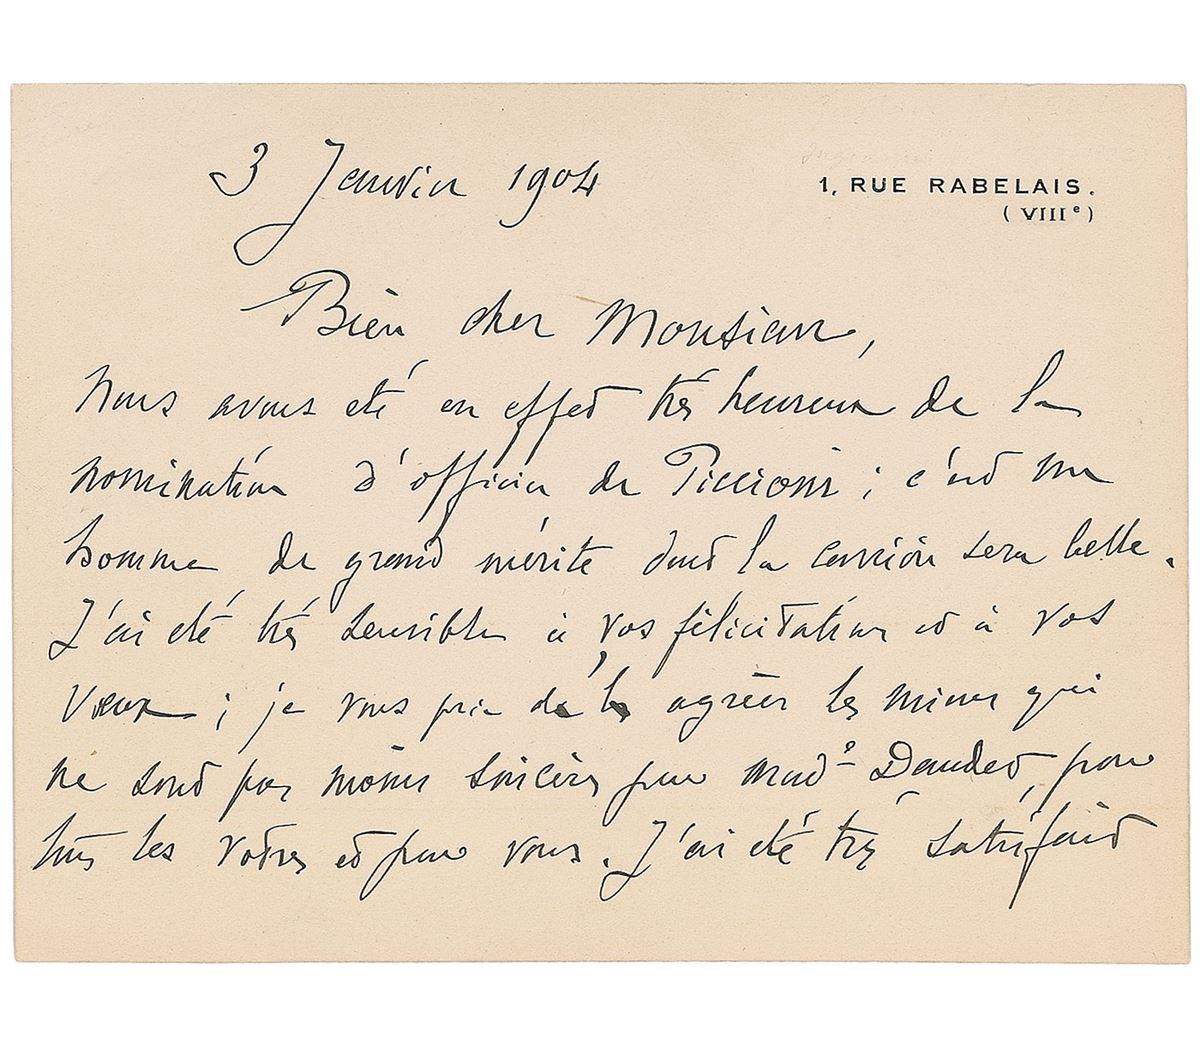 3 Janvier 1904
1, RUE RABELAIS.
(VIIIe)
Bien cher Monsieur,
Nous avons été en effet très heureux de la
nomination d'officier de Piccioni ; c'est un
homme de grand mérite dont la carrière sera belle.
J'ai été très sensible à vos félicitations et à vos
vœux ; je vous prie de les agréer les miens qui
ne sont pas moins sincères pour Made Daudet, pour
tous les vôtres et pour vous. J'ai été très satisfait